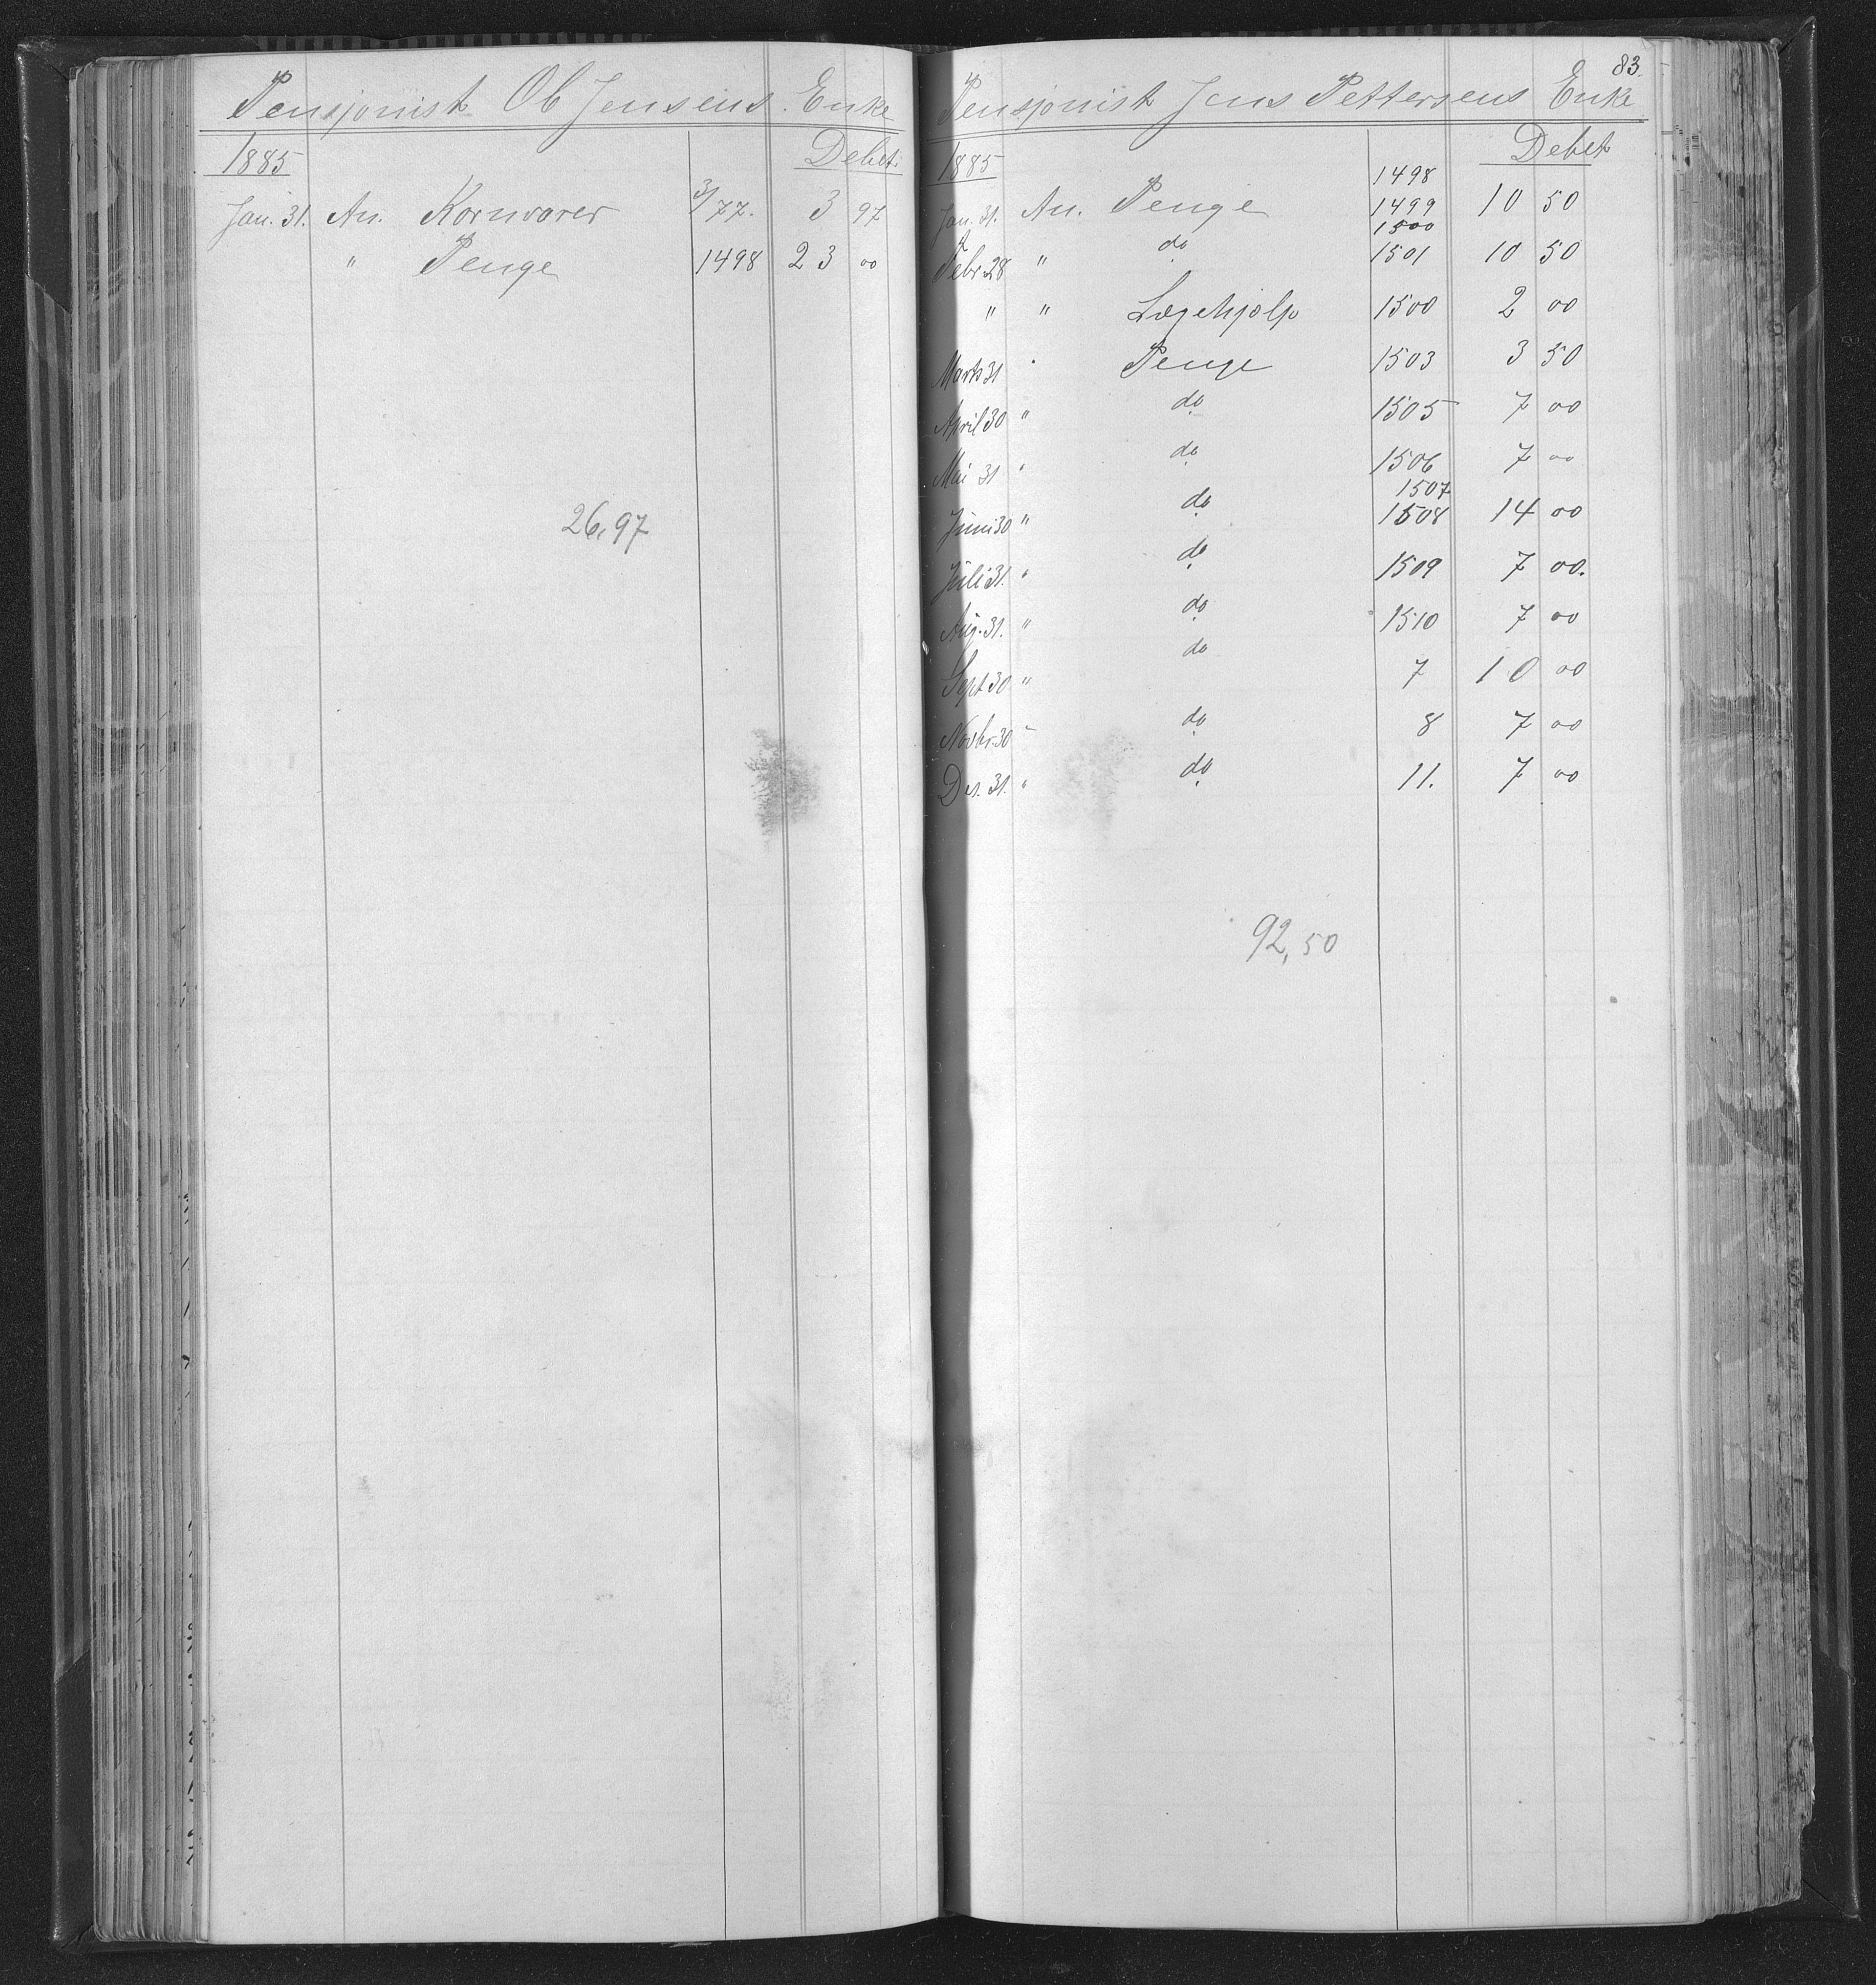 Pensjonist Ol Jensens Enke
1885 Debet
Jan. 31. An. Kornvarer 3/77. 3 97
" Penge 1498 23 00
26,97
83.
Pensjonist Jens Pettersens Enke
1885 Debet
1498
Jan. 31. An. Penge 1499 10 50
1500
Febr. 28 " do 1501 10 50
" " Lægehjælp 1500 2 00
Marts 31 " Penge 1503 3 50
April 30 " do 1505 7 00
Mai 31 " do 1506 7 00
1507
Juni 30 " do 1508 14 00
Juli 31. " do 1509 7 00.
Aug. 31. " do 1510 7 00
Sept 30 " do 7 10 00
Novbr. 30 " do 8 7 00
Des. 31. " do 11. 7 00
92,50